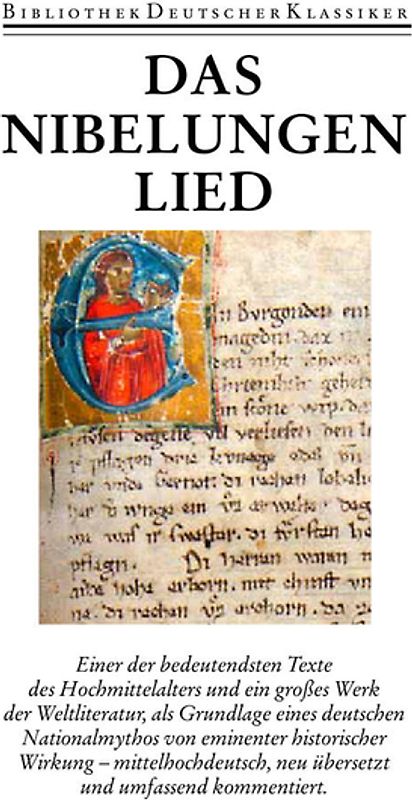 BIBLIOTHEK DEUTSCHER KLASSIKER
DAS
NIBELUNGEN
LIED
E
In Burgonden ein
magedin. daz in
den niht schoners
geheizen
ein scone wip. daz
degene vil verliesen den
ir pflagen drie kunege edel
ir swester. di fursten
pflagn. Di herren waren
hohe arborn. mit
Einer der bedeutendsten Texte
des Hochmittelalters und ein großes Werk
der Weltliteratur, als Grundlage eines deutschen
Nationalmythos von eminenter historischer
Wirkung – mittelhochdeutsch, neu übersetzt
und umfassend kommentiert.